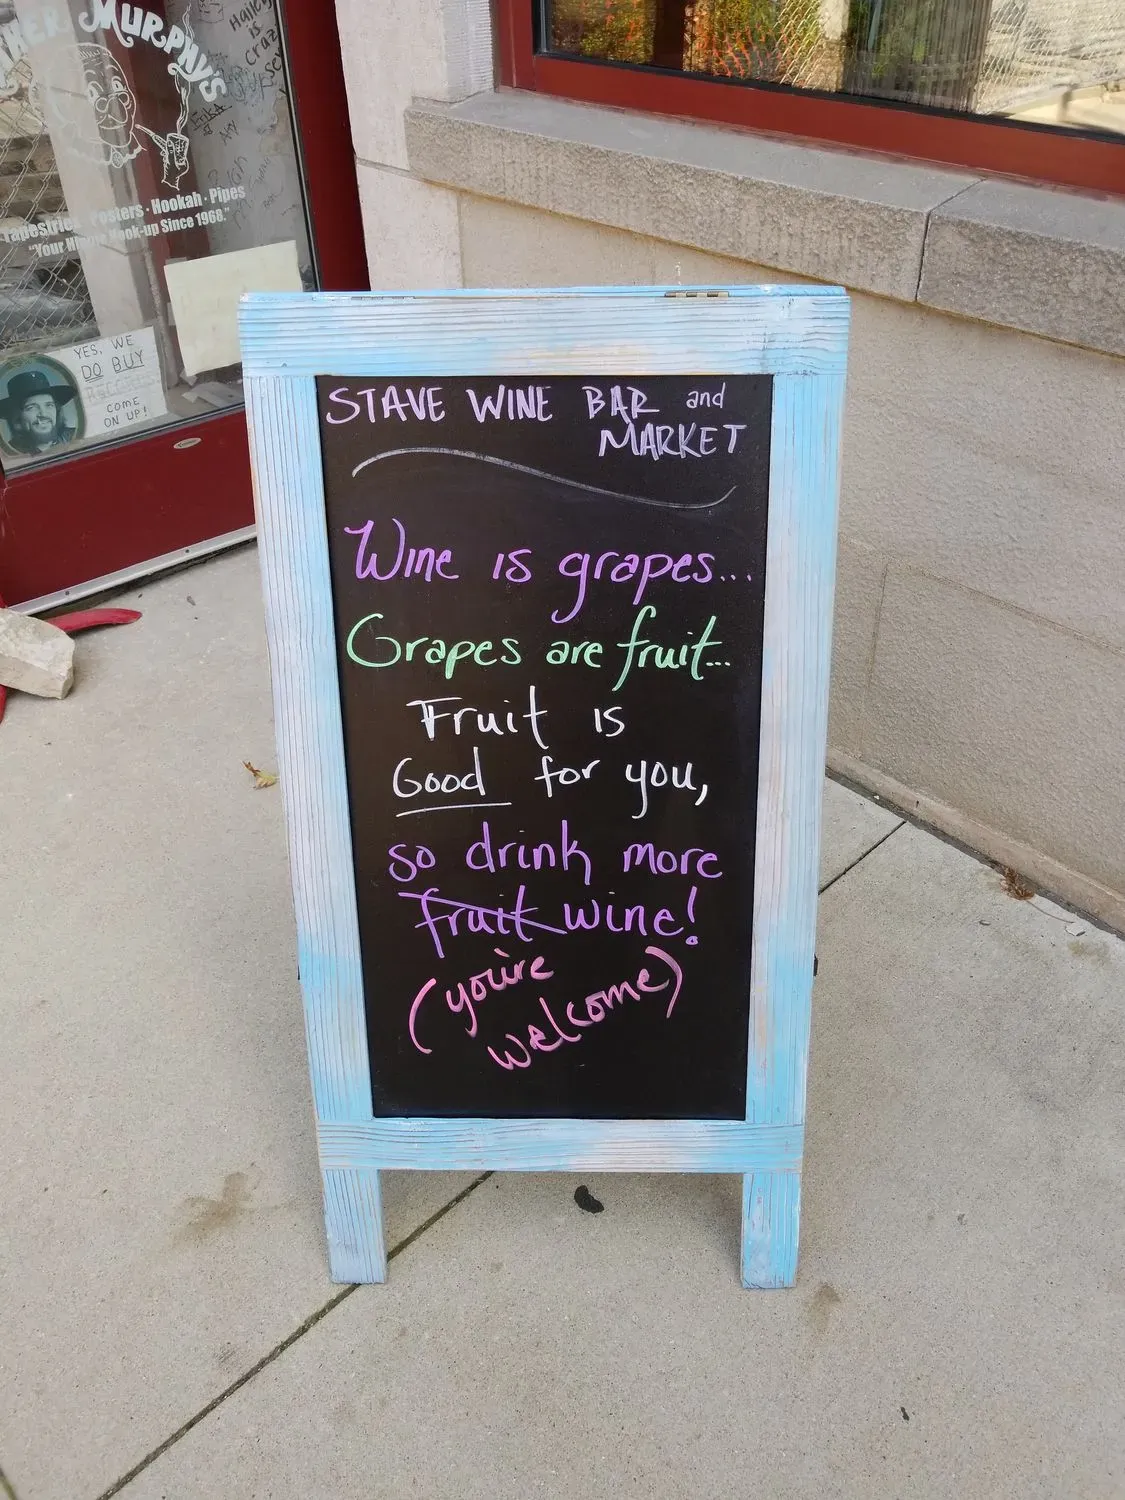 MURPHY'S
Hailey
is
Crazy
Erika
Tapestries · Posters · Hookah · Pipes
"Your Hippie Hook-up Since 1968."
YES, WE
DO BUY
RECORDS
COME
ON UP!
STAVE WINE BAR and
MARKET
Wine is grapes...
Grapes are fruit...
Fruit is
Good for you,
so drink more
fruit wine!
(you're
welcome)